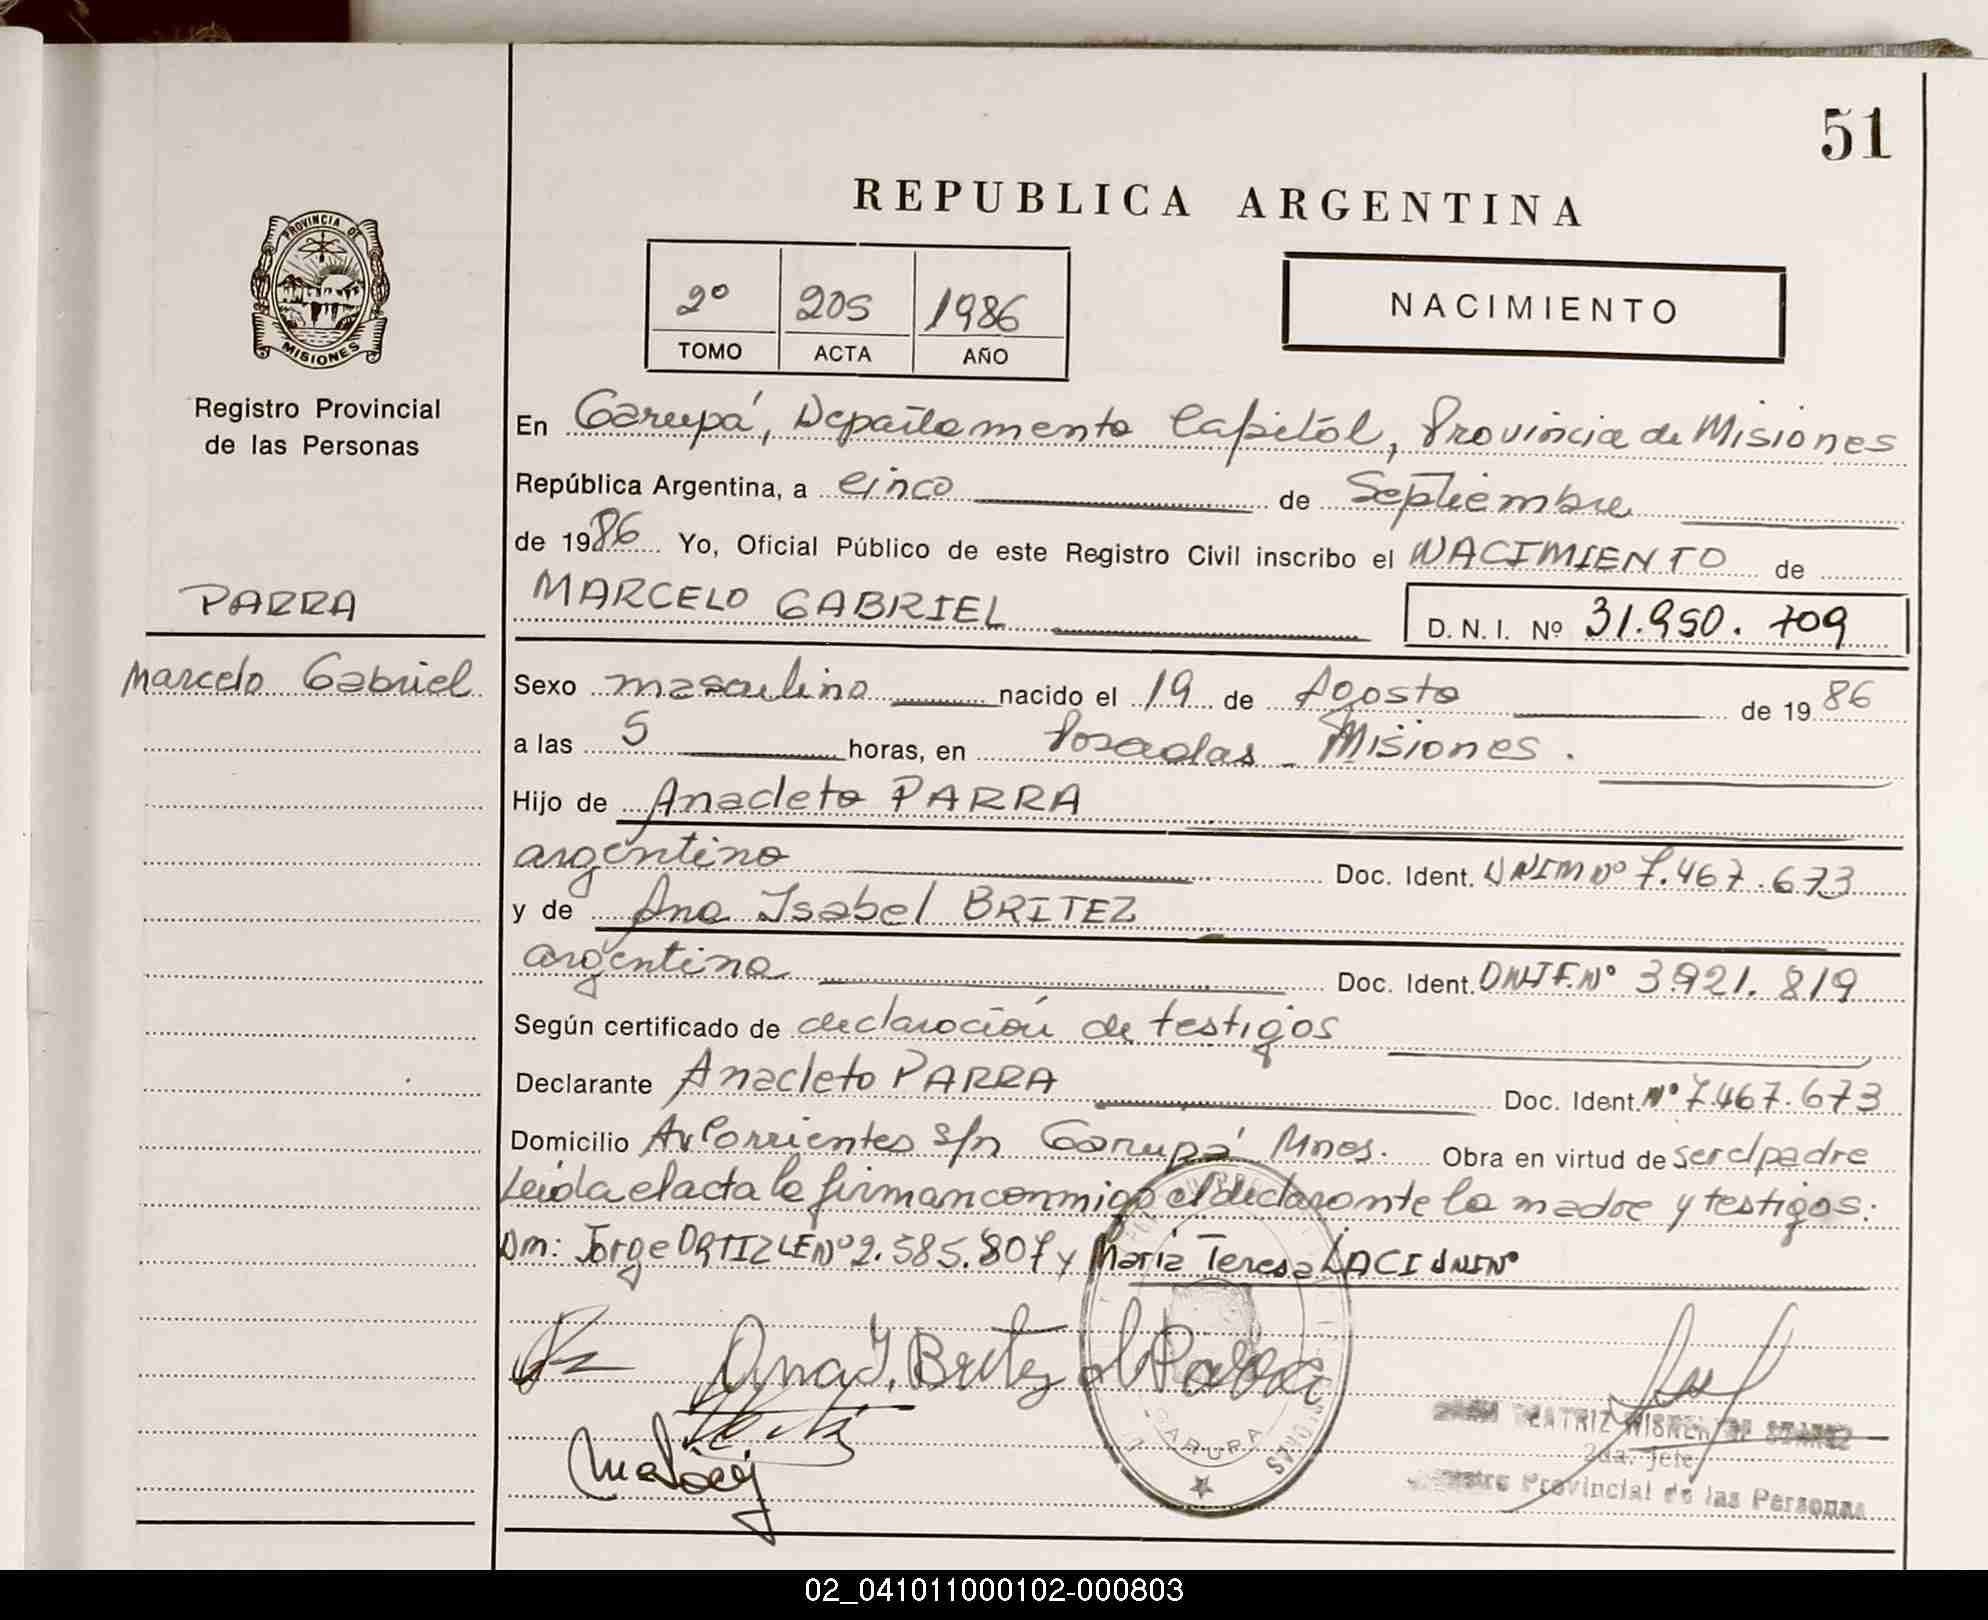 51
REPUBLICA ARGENTINA
PROVINCIA DE
MISIONES
Registro Provincial
de las Personas
2º 205 1986
TOMO ACTA AÑO
NACIMIENTO
En Garupá, Departamento Capital, Provincia de Misiones
República Argentina, a cinco de Septiembre
de 1986 Yo, Oficial Público de este Registro Civil inscribo el NACIMIENTO de
PARRA
MARCELO GABRIEL D. N. I. Nº 31.950.709
Marcelo Gabriel
Sexo masculino nacido el 19 de Agosto de 1986
a las 5 horas, en Posadas - Misiones.
Hijo de Anacleto PARRA
argentino Doc. Ident. DNIM Nº 7.467.673
y de Ana Isabel BRITEZ
argentina Doc. Ident. DNIF. Nº 3.921.819
Según certificado de declaración de testigos
Declarante Anacleto PARRA Doc. Ident. Nº 7.467.673
Domicilio Av Corrientes s/n Garupá Mnes. Obra en virtud de ser el padre
Leída el acta la firman conmigo el declarante la madre y testigos:
Dm: Jorge ORTIZ LE Nº 2.585.807 y María Teresa LACI DNI Nº
Ana I. Britez de Parra
GARUPA
MISIONES
BEATRIZ DE SUAREZ
2da. Jefe
Registro Provincial de las Personas
02_041011000102-000803